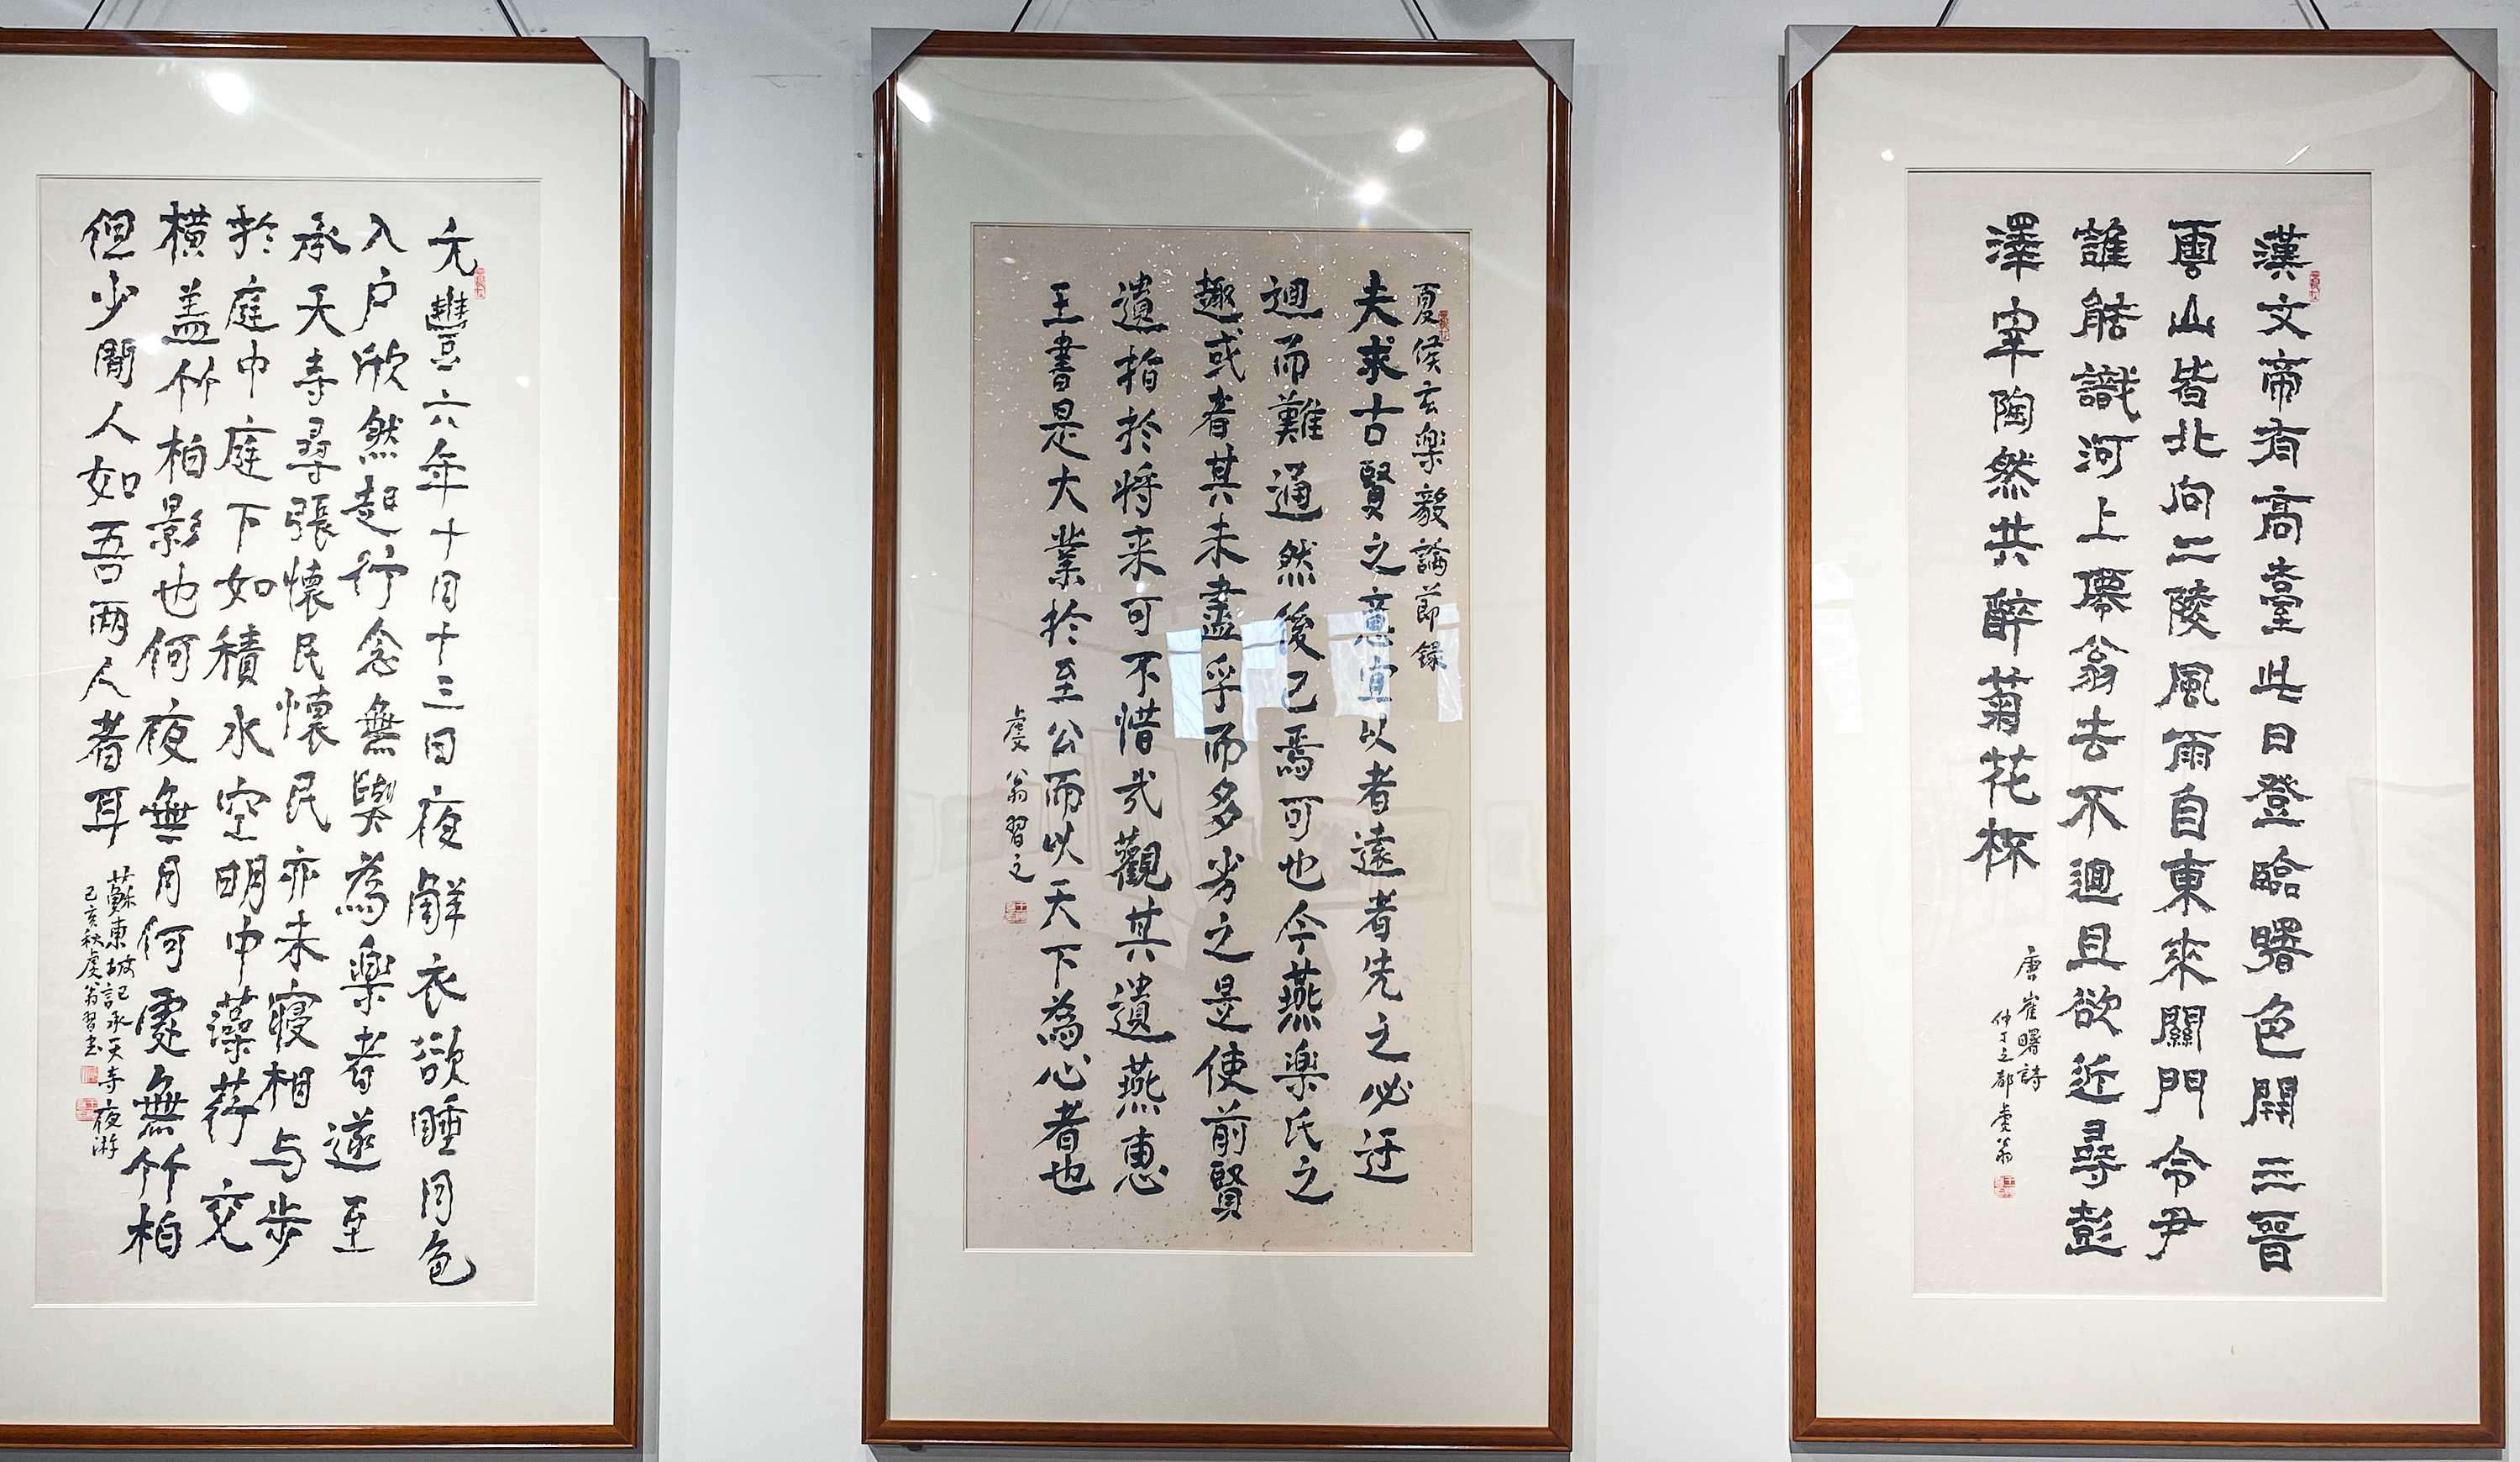 漢文帝有高臺此日登臨曙色開三晉
雲山皆北向二陵風雨自東來關門令尹
誰能識河上僊翁去不迴且欲近尋彭
澤宰陶然共醉菊花杯
唐崔曙詩
仲丁之都虔翁
夏侯玄楽毅論節録
夫求古賢之意宜以者遠者先之必迂
迴而難通然後已焉可也今燕楽氏之
趣或者其未盡乎而多劣之是使前賢
遺指於将来可不惜哉觀其遺燕惠
王書是大業於至公而以天下為心者也
虔翁習之
元豐六年十月十三日夜解衣欲睡月色
入户欣然起行念無與為楽者遂至
承天寺尋張懷民懷民亦未寢相与步
於庭中庭下如積水空明中藻荇交
横盖竹柏影也何夜無月何處無竹柏
但少閒人如吾兩人者耳
蘇東坡記承天寺夜游
己亥秋虔翁習書